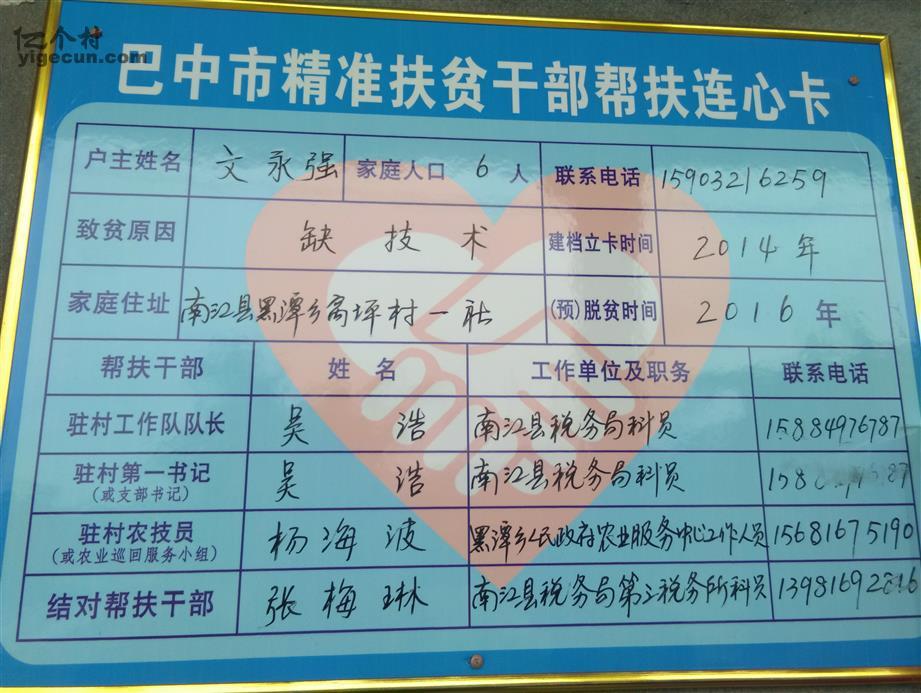 亿个村
yigecun.com
巴中市精准扶贫干部帮扶连心卡
户主姓名 文永强 家庭人口 6 人 联系电话 15903216259
致贫原因 缺技术 建档立卡时间 2014年
家庭住址 南江县黑潭乡高坪村一社 (预)脱贫时间 2016年
帮扶干部 姓名 工作单位及职务 联系电话
驻村工作队队长 吴浩 南江县税务局科员 15884976787
驻村第一书记 吴浩 南江县税务局科员
(或支部书记)
驻村农技员 杨海波 黑潭乡人民政府农业服务中心工作人员 15681675190
(或农业巡回服务小组)
结对帮扶干部 张梅琳 南江县税务局第三税务所科员